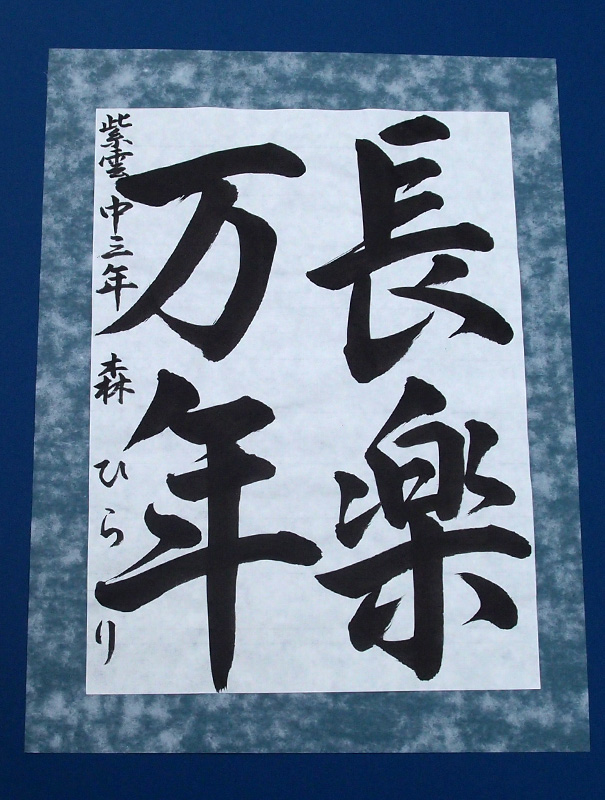 長楽
万年
紫雲中三年 森ひらり